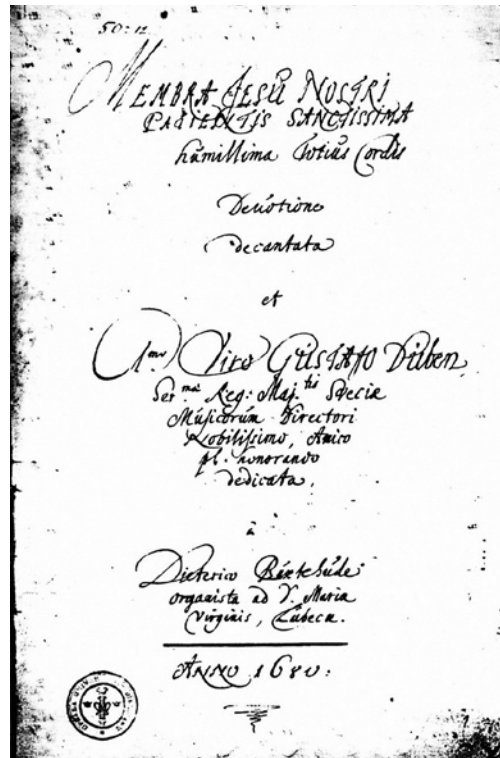 50:12.
MEMBRA JESU NOSTRI
PATIENTIS SANCTISSIMA
humillima Totius Cordis
Devotione
decantata
et
Viro GUSTAVO Düben
Ser.mæ Reg: Maj.tis Sveciæ
Musicorum Directori
Nobilissimo, Amico
pl. honorando
dedicata,
à
Dieterico Buxtehude
organista ad S. Mariæ
Virginis, Lübecæ.
ANNO 1680: